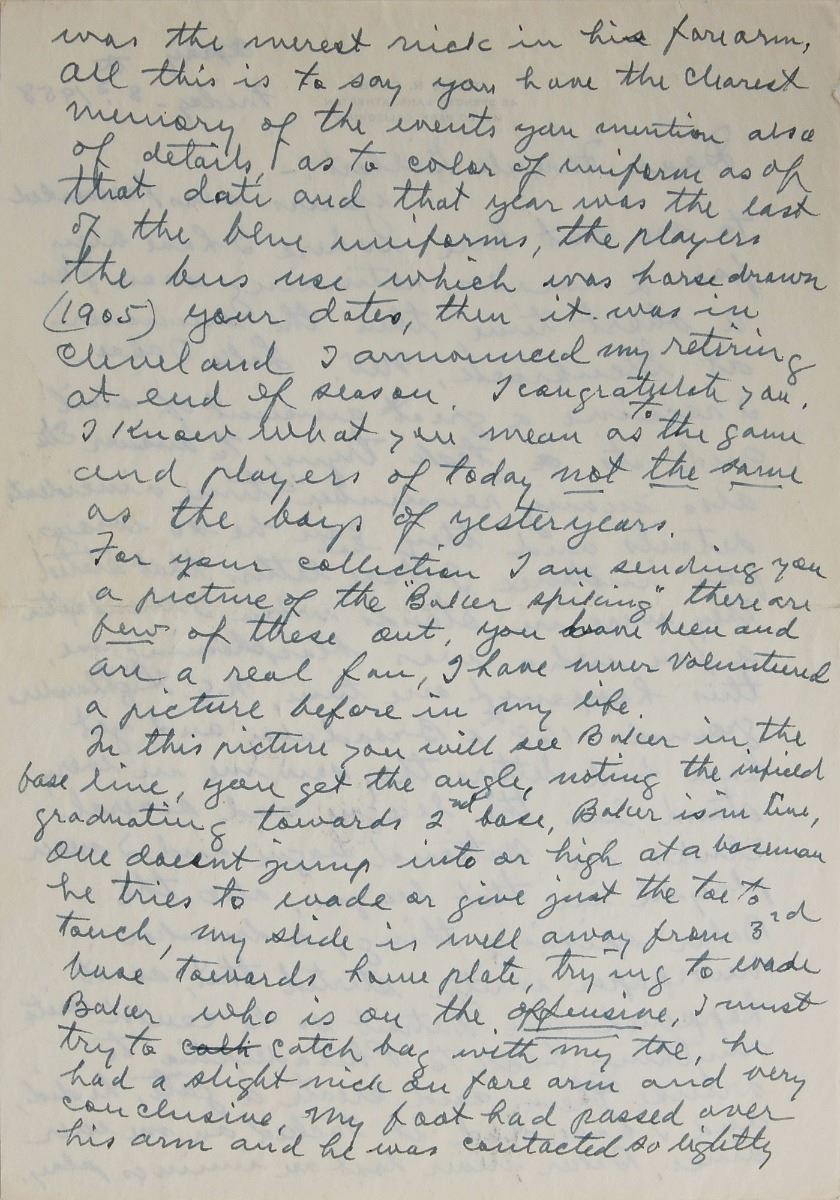 was the merest nick in his forearm,
all this is to say you have the clearest
memory of the events you mention also
of details, as to color of uniform as of
that date and that year was the last
of the blue uniforms, the players
the bus use which was horse drawn
(1905) your dates, then it was in
Cleveland I announced my retiring
at end of season. I congratulate you.
I know what you mean as to the game
and players of today not the same
as the boys of yesteryears.
For your collection I am sending you
a picture of the "Baker spiking" there are
few of these out, you have been and
are a real fan, I have never volunteered
a picture before in my life.
In this picture you will see Baker in the
base line, you get the angle, noting the infield
graduating towards 2nd base, Baker is in line,
one doesnt jump into or high at a baseman
he tries to evade or give just the toe to
touch, my slide is well away from 3rd
base towards home plate, trying to evade
Baker who is on the offensive, I must
try to catch bag with my toe, he
had a slight nick on fore arm and very
conclusive, my foot had passed over
his arm and he was contacted so lightly